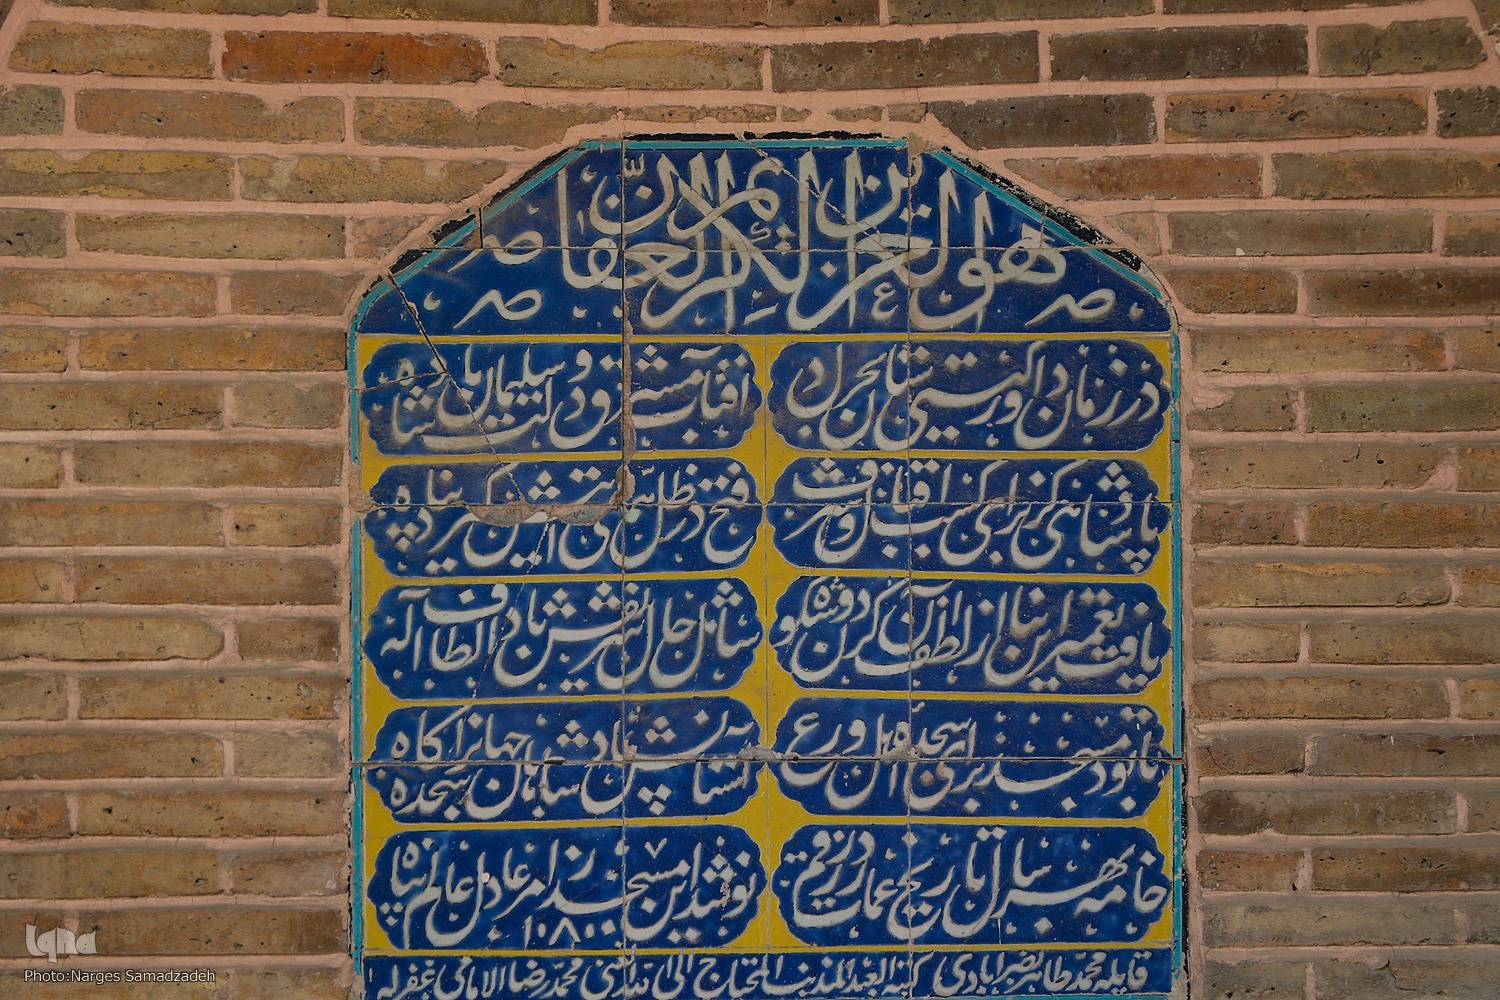 هو العزیز الکریم الغفار
در زمان داور گیتی ستان بحر دل
آفتاب مشتری رو و سلیمان بارگاه
پادشاهی کز برای کسب اقبال و شرف
فتح در ظل همای رایتش گیرد پناه
یافت تعمیر این بنا از لطف آن گردون شکوه
شامل حال شریفش باد الطاف اله
تا بود مسجد برای سجده اهل ورع
آستانش باد شاهان جهان را سجده گاه
خامه بهر سال تاریخ عمارت زد رقم
نو شد این مسجد ز امر عادل عالم پناه
۱۰۸۰
قایله محمد طاهر نصرآبادی کتبه العبد المذنب المحتاج الی الغنی محمد رضا الامامی غفر له
Iqna
Photo:Narges Samadzadeh